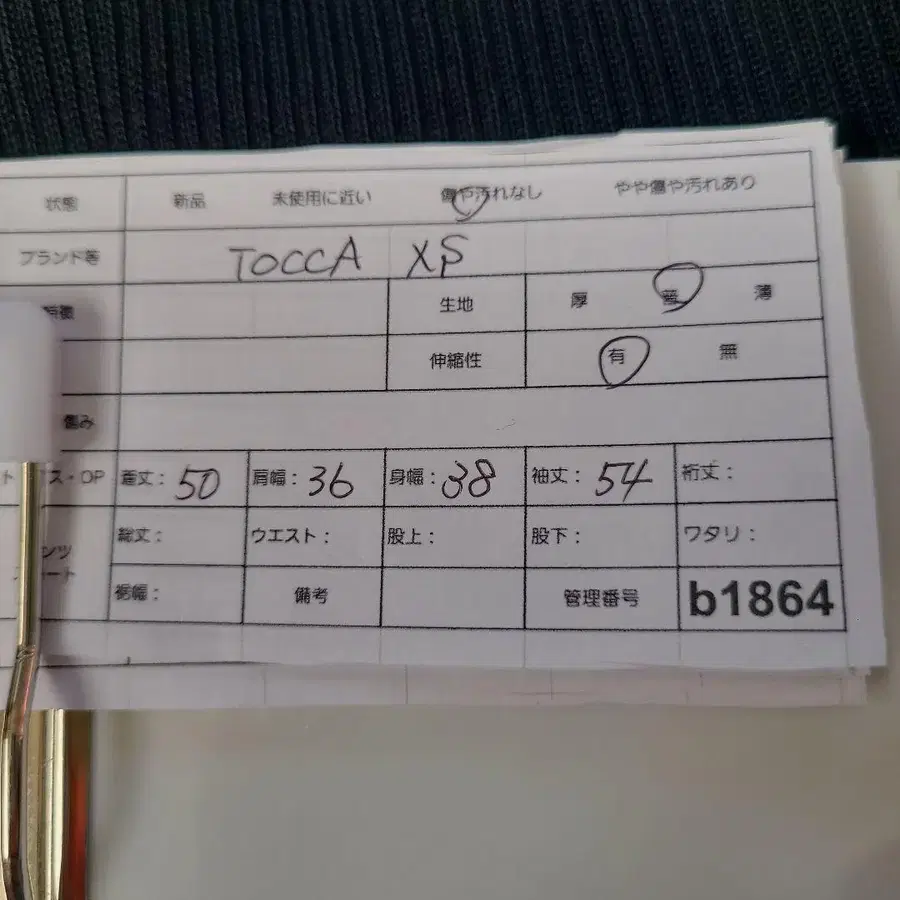 状態 新品 未使用に近い 傷や汚れなし やや傷や汚れあり
ブランド等 TOCCA XS
生地 厚 普 薄
伸縮性 有 無
傷み
ス・OP 着丈：50 肩幅：36 身幅：38 袖丈：54 裄丈：
総丈： ウエスト： 股上： 股下： ワタリ：
裾幅： 備考 管理番号 b1864